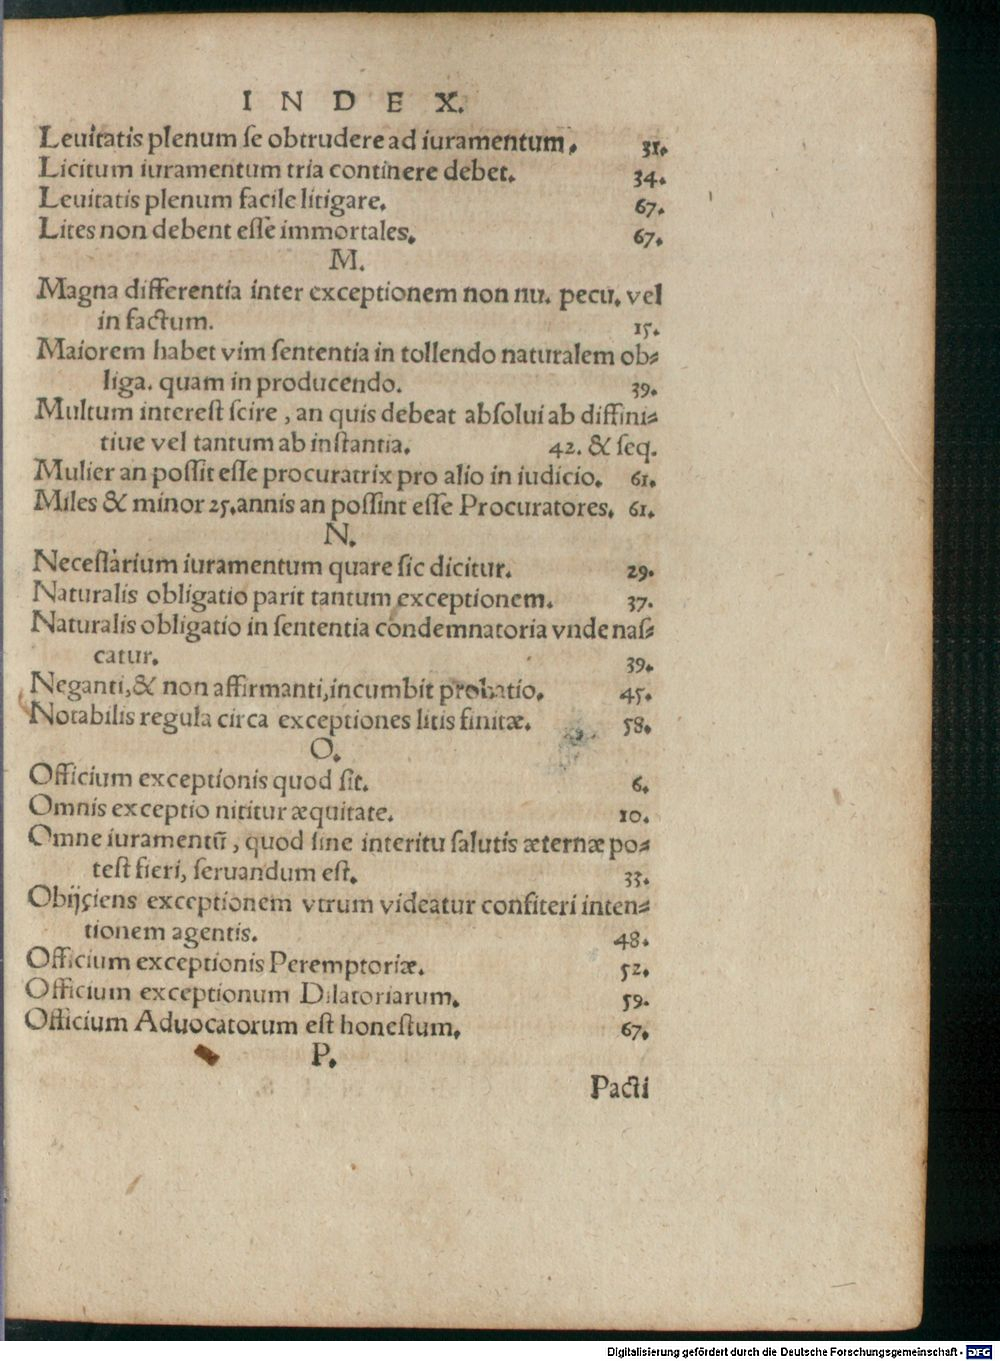 INDEX.
Leuitatis plenum se obtrudere ad iuramentum. 31.
Licitum iuramentum tria continere debet. 34.
Leuitatis plenum facile litigare. 67.
Lites non debent esse immortales. 67.
M.
Magna differentia inter exceptionem non nu. pecu. vel
in factum. 15.
Maiorem habet vim sententia in tollendo naturalem ob-
liga. quam in producendo. 39.
Multum interest scire, an quis debeat absolui ab diffini-
tiue vel tantum ab instantia. 42. & seq.
Mulier an possit esse procuratrix pro alio in iudicio. 61.
Miles & minor 25. annis an possint esse Procuratores. 61.
N.
Necessarium iuramentum quare sic dicitur. 29.
Naturalis obligatio parit tantum exceptionem. 37.
Naturalis obligatio in sententia condemnatoria vnde nas-
catur. 39.
Neganti, & non affirmanti, incumbit probatio. 45.
Notabilis regula circa exceptiones litis finitæ. 58.
O.
Officium exceptionis quod sit. 6.
Omnis exceptio nititur æquitate. 10.
Omne iuramentũ, quod sine interitu salutis æternæ po-
test fieri, seruandum est. 33.
Obijciens exceptionem vtrum videatur confiteri inten-
tionem agentis. 48.
Officium exceptionis Peremptoriæ. 52.
Officium exceptionum Dilatoriarum. 59.
Officium Aduocatorum est honestum. 67.
P.
Pacti
Digitalisierung gefördert durch die Deutsche Forschungsgemeinschaft - DFG